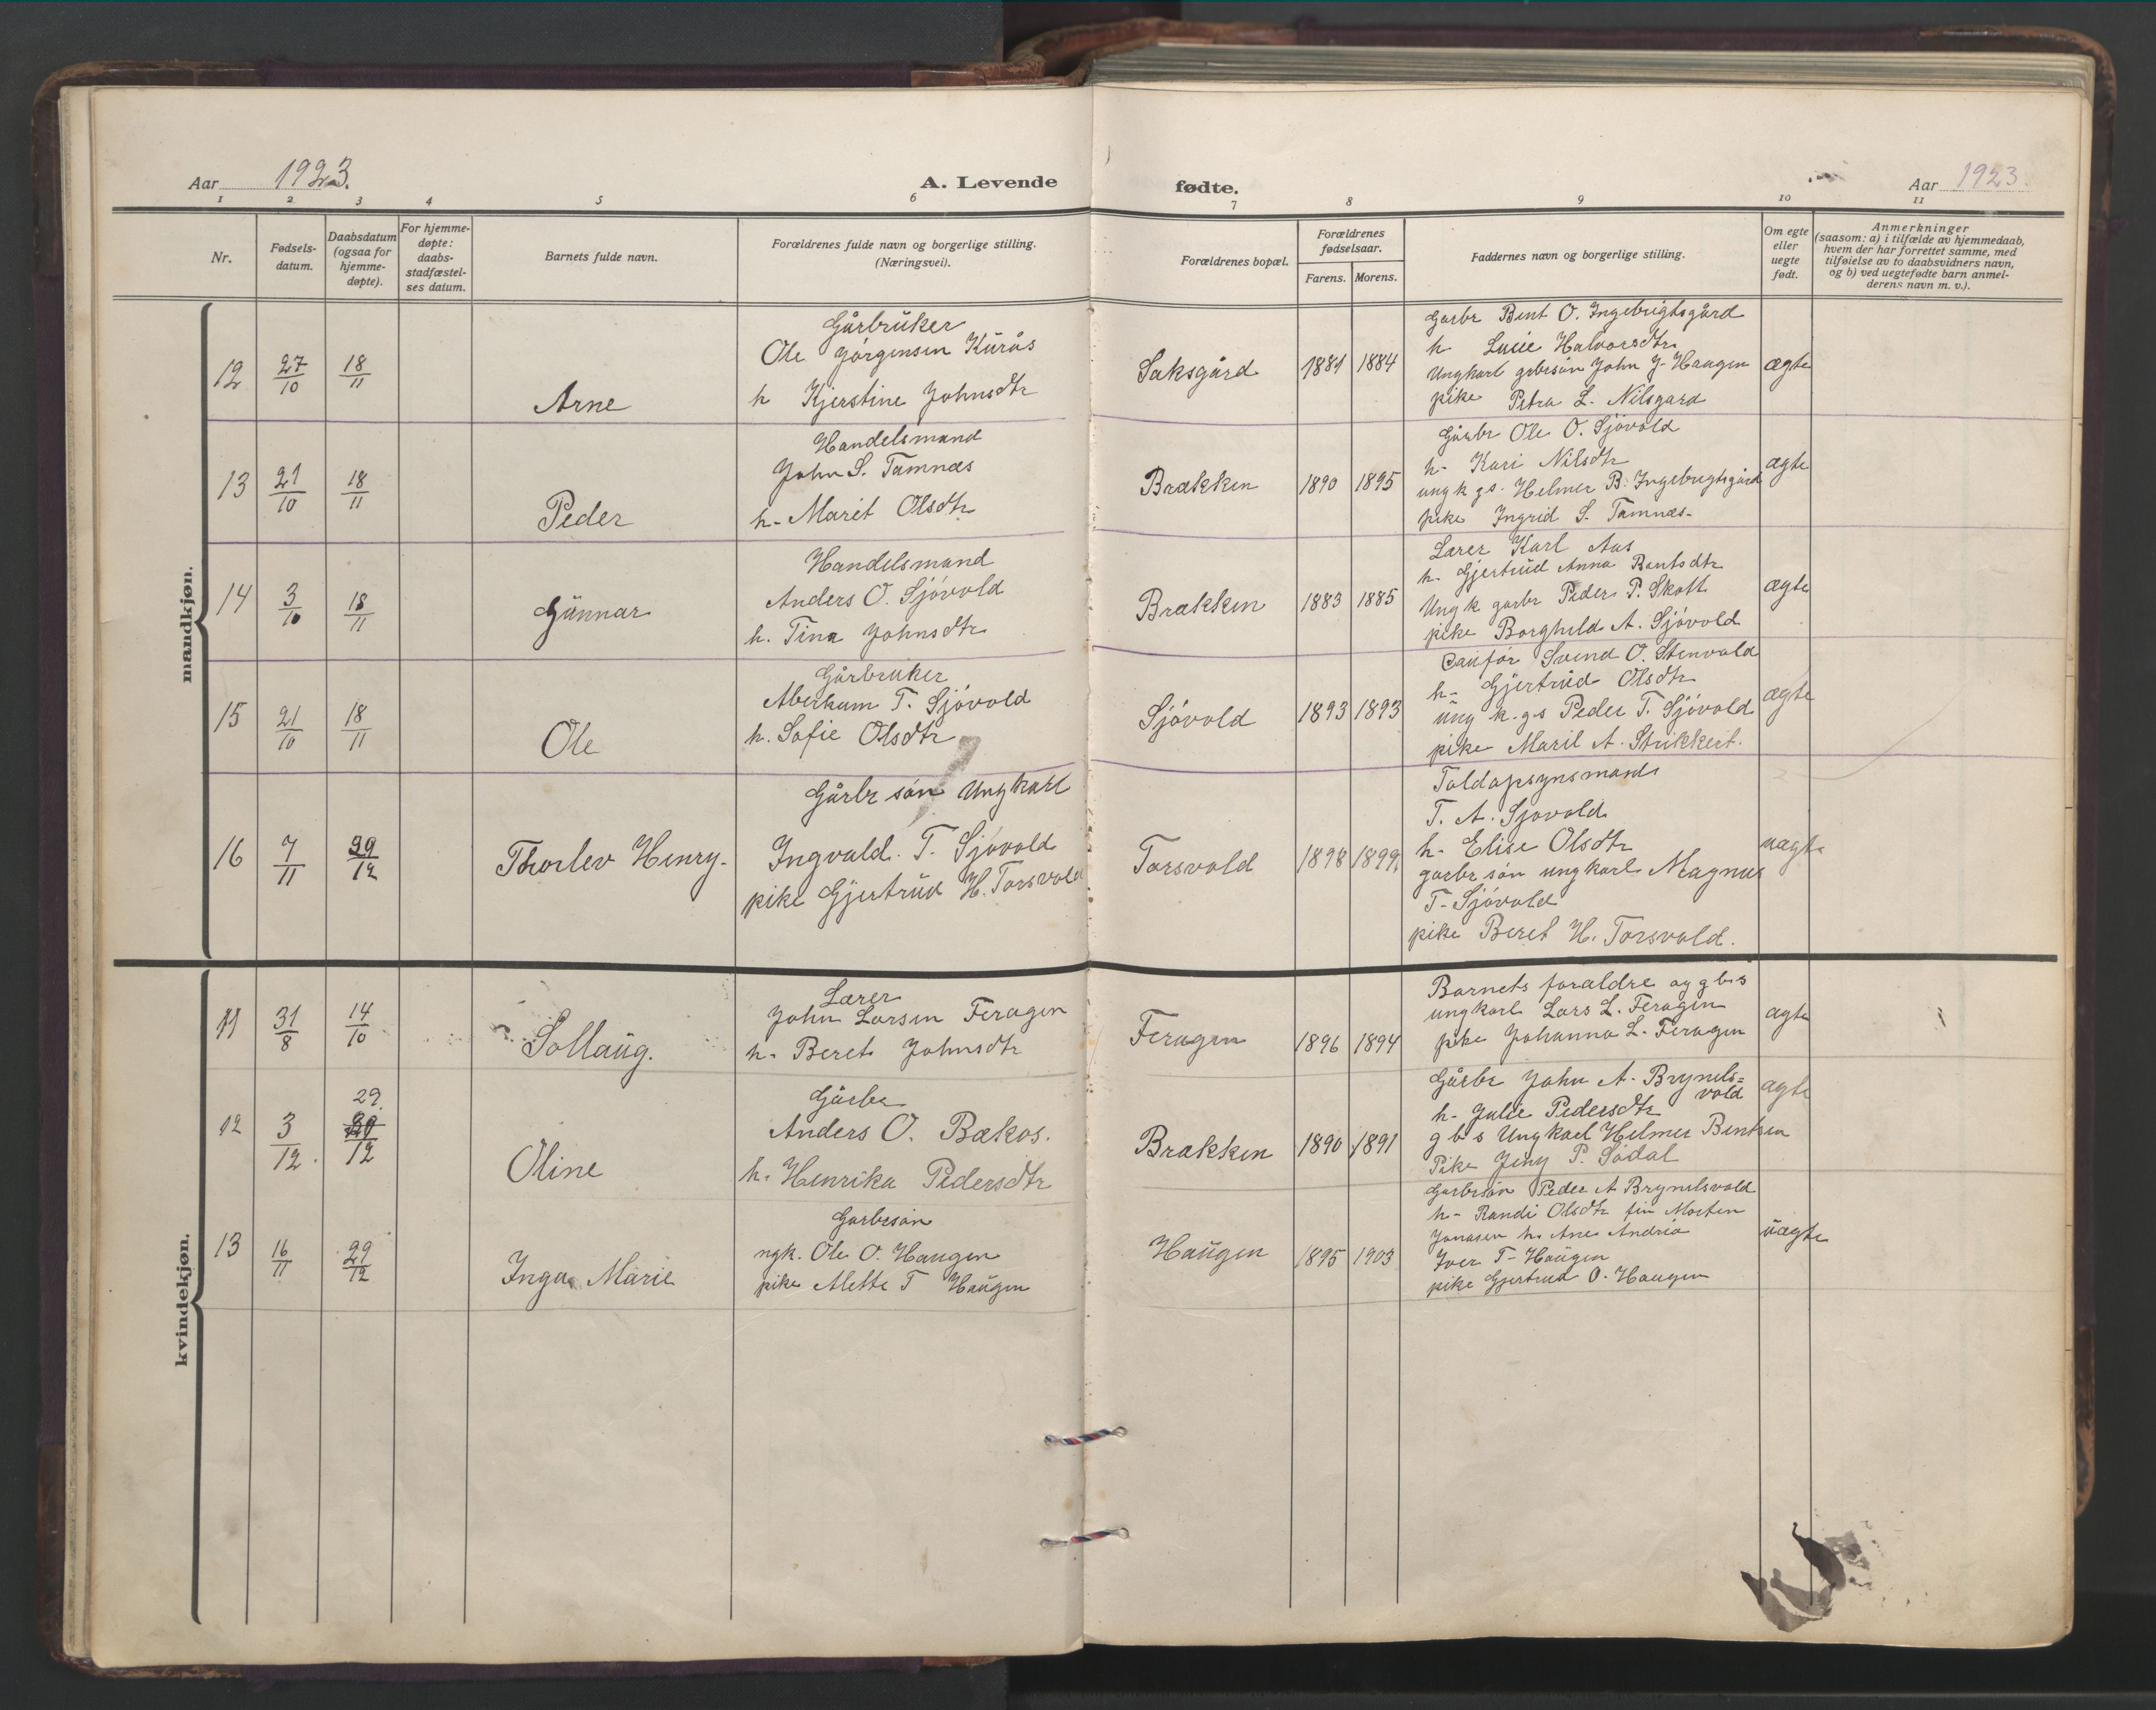 Aar 1923.
A. Levende fødte.
Aar 1923.
1 2 3 4 5 6 7 8 9 10 11
Nr.
Fødsels-
datum.
Daabsdatum
(ogsaa for
hjemme-
døpte).
For hjemme-
døpte:
daabs-
stadfæstel-
ses datum.
Barnets fulde navn.
Forældrenes fulde navn og borgerlige stilling.
(Næringsvei).
Forældrenes bopæl.
Forældrenes
fødselsaar.
Farens. Morens.
Faddernes navn og borgerlige stilling.
Om egte
eller
uegte
født.
Anmerkninger
(saasom: a) i tilfælde av hjemmedaab,
hvem der har forrettet samme, med
tilføielse av to daabsvidners navn,
og b) ved uegtefødte barn anmel-
derens navn m. v.).
mandkjøn.
12 27/10 18/11 Arne
Gårbrüker
Ole Jörgensen Kürås
h Kjerstine Johnsdtr
Saksgård 1881 1884
Garbr Bent O. Ingebrigtsgård
h Lucie Halvorsdtr
Ungkarl grbrsön John J. Haugen
pike Petra L. Nilsgard
ægte
13 21/10 18/11 Peder
Handelsmand
John S. Tamnæs
h. Marit Olsdtr
Brækken 1890 1895
Gårbr Ole O. Sjövold
h. Kari Nilsdtr
ungk gs. Helmer B. Ingebrigtsgård
pike Ingrid S. Tamnæs.
ægte
14 3/10 18/11 Günnar
Handelsmand
Anders O. Sjövold
h. Tina Johnsdtr
Brækken 1883 1885
Lærer Karl Aas
h. Gjertrüd Anna Bentsdtr
Ungk garbr Peder P. Skott
pike Borghild A. Sjövold
ægte
15 21/10 18/11 Ole
Gårbruker
Aberham T. Sjövold
h. Sofie Olsdtr
Sjövold 1893 1893
Svend O. Stenvold
h. Gjertrüd Olsdtr
üng k. gs Peder T. Sjövold
pike Marit A. Strikkert.
ægte
16 7/11 29/12 Thorlev Henry.
Gårbr sön Ungkarl
Ingvald. T. Sjövold
pike Gjertrüd H. Torsvold
Torsvold 1898 1899.
Toldopsynsmand
T. A. Sjövold
h. Elise Olsdtr
garbr sön ungkarl Magnus
T. Sjövold
pike Beret H. Torsvold.
uægte
kvindekjøn.
11 31/8 14/10 Sollaüg.
Lærer
John Larsen Feragen
h. Beret Johnsdtr
Feragen 1896 1894
Barnets forældre og gbs
ungkarl Lars L. Feragen
pike Johanna L. Feragen
ægte
12 3/12. 29. 12 Oline
Gårbr
Anders O. Bækos.
h. Henrika Pedersdtr
Brækken 1890 1891
Gårbr John A. Brynels=
vold
h. Julie Pedersdtr
g b s Ungkarl Helmer Bentsen
Pike Jeny P. Södal
ægte
13 16/11 29/12 Inga Marie
Garbrsön
ngk. Ole O. Haugen
pike Alette T Haügen
Haügen 1895 1903
Garbrsön Peder A Brynelsvold
h. Randi Olsdtr Morten
Jonasen h. Ane Andrea
Iver T. Haügen
pike Gjertrud O. Haugen
üægte